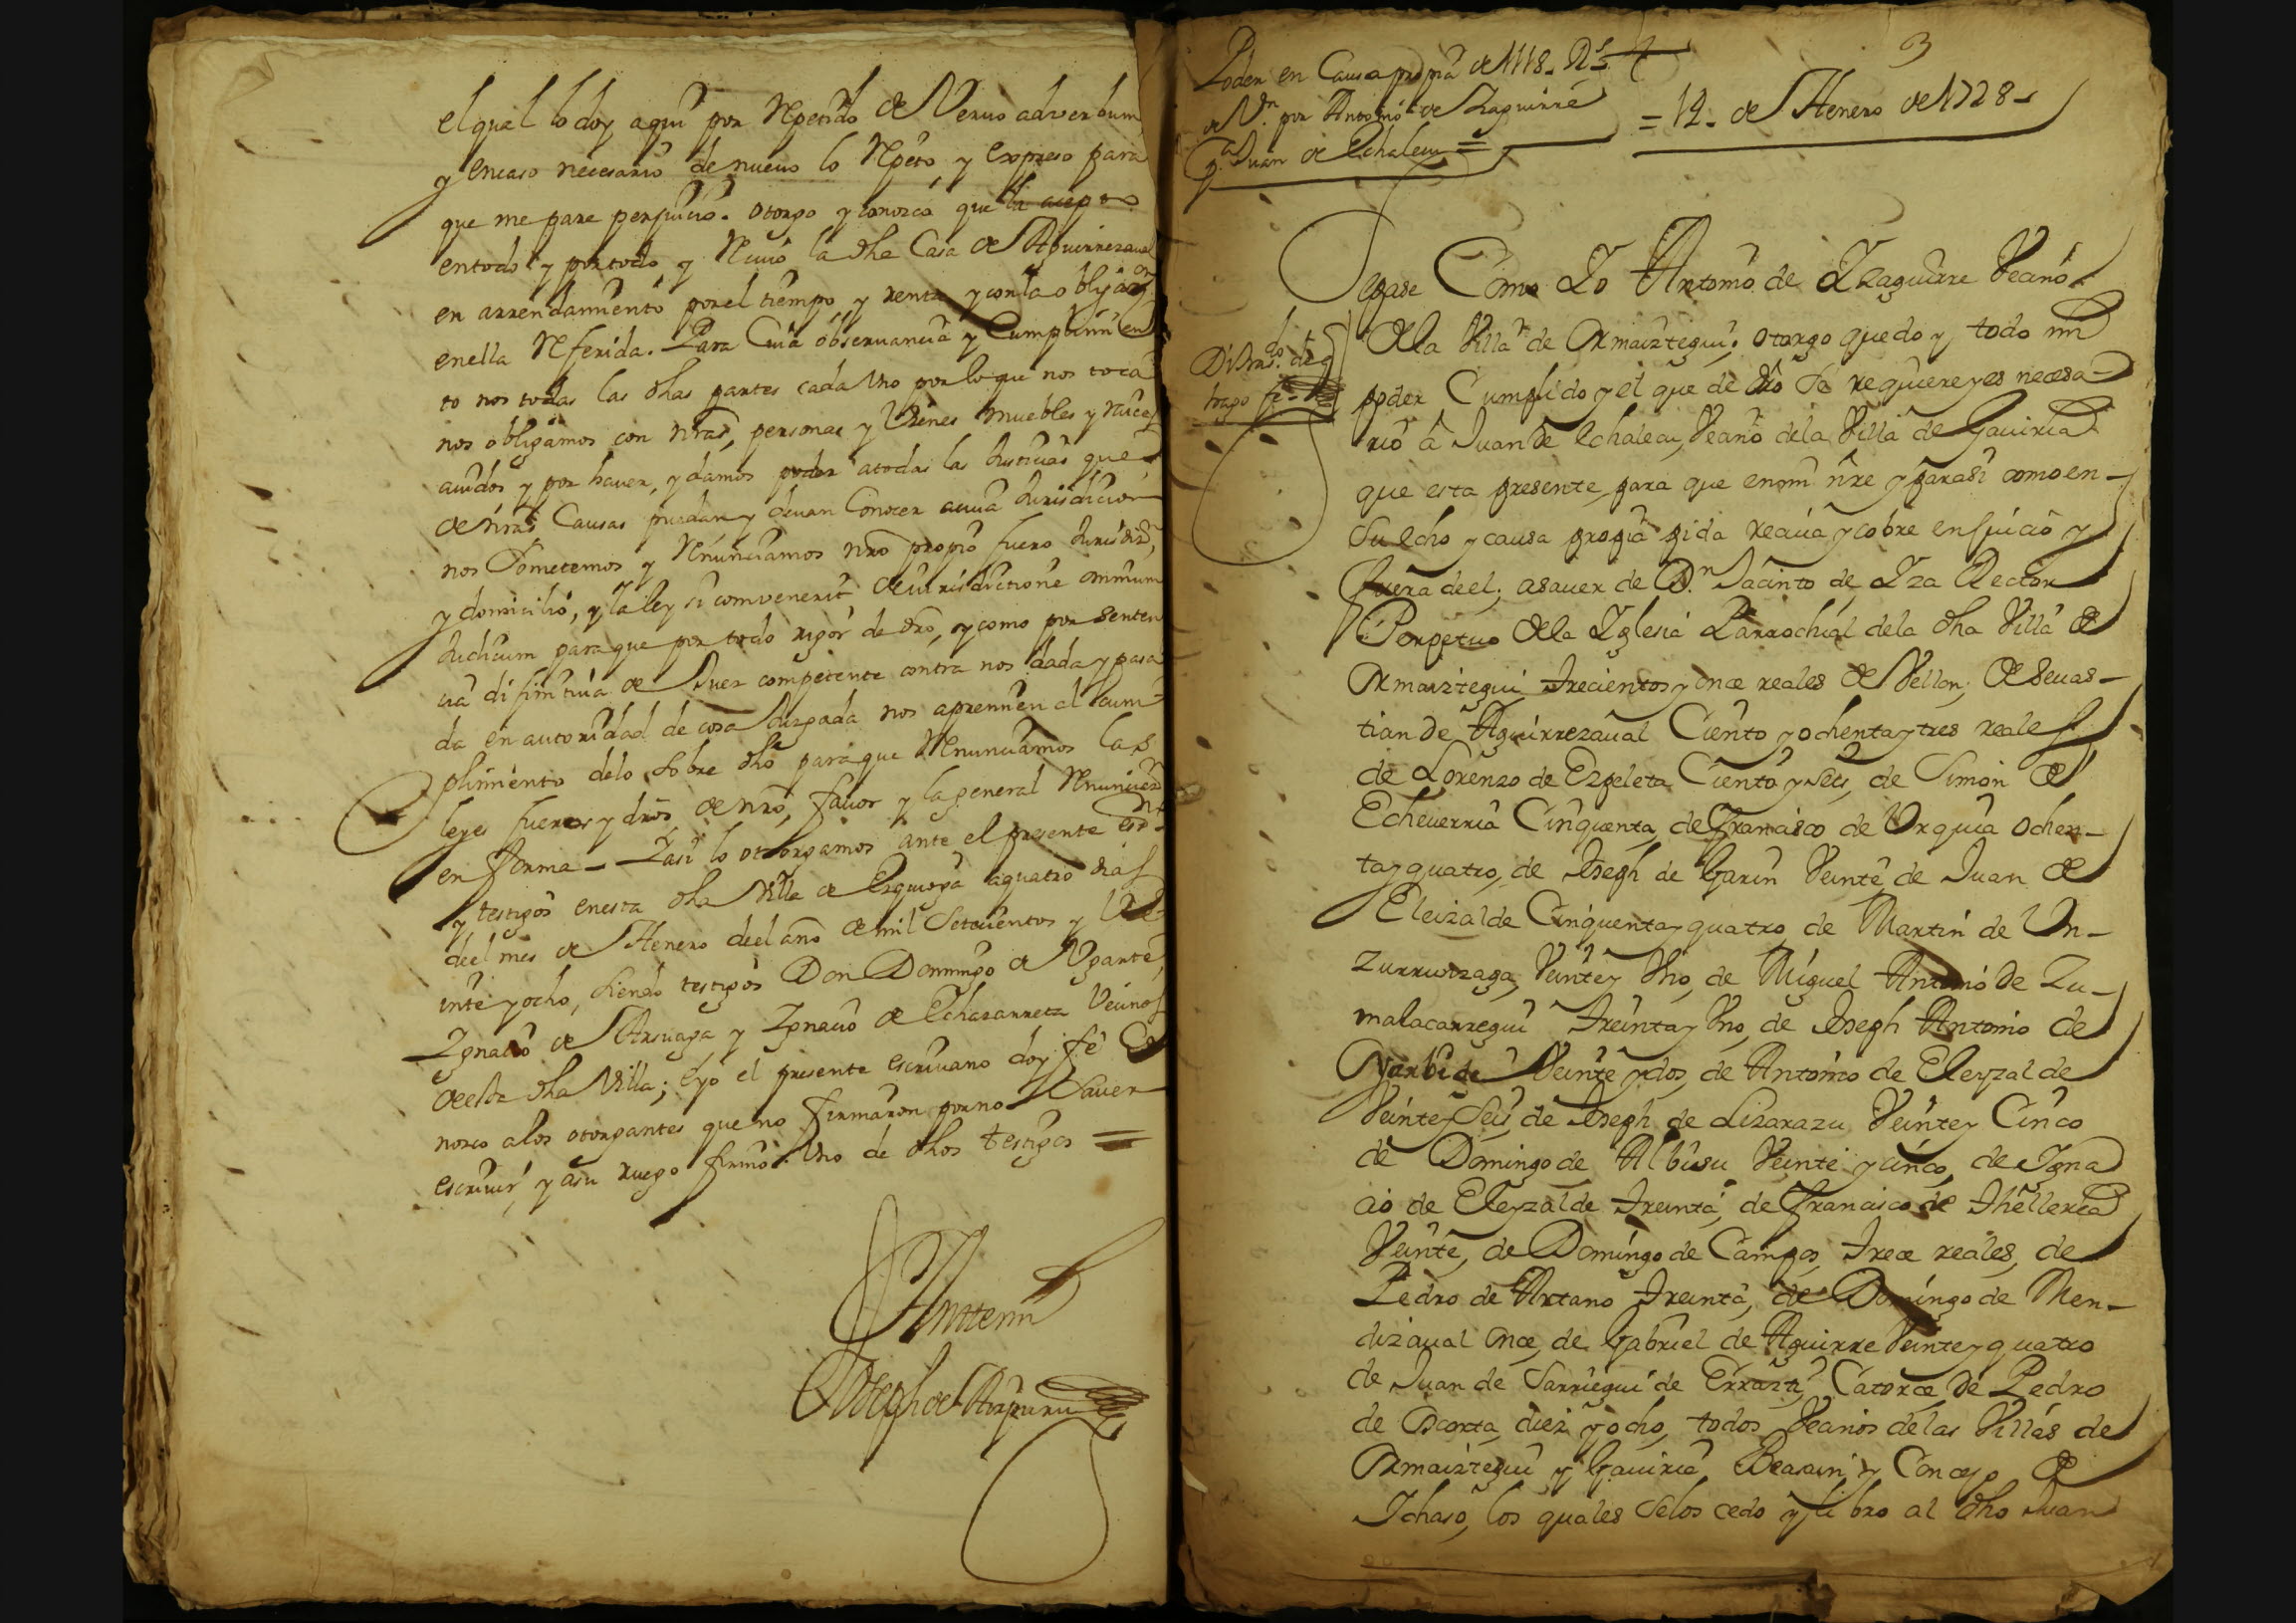 el qual lo doy aqui por Repetido de Veruo aduerbum
y encaso necesario de nueuo lo Repito, y expreso para
que me pare perjuicio. otorgo y conozco que la acepto
entodo y portodo y Reciuo la dha Casa de Aguirrezaual
en arrendamiento por el tiempo, y renta y con la obligaon
enella Referida. Para Cuia obseruancia y Cumplimien
to nos todas las dhas partes cada Vno por lo que nos toca
nos obligamos con nras personas y Vienes muebles y raices
auidos y por hauer, y damos poder atodas las Justicias que
de nras Causas puedan y deuan Conocer acuia Jurisdicion
nos Sometemos y Renunciamos nro propio fuero Jurisdizn
y domicilio, y la ley si convenerit de iurisdictione omnium
Judicum paraque por todo rigor de dro, y como por senten
cia difinitiua de Juez competente contra nos dada y pasa
da en autoridad de cosa Juzgada nos apremien al cum
plimiento delo sobre dho paraque Renunciamos las
leyes fueros y dros de nro fauor y la general Renunciazn
en forma - Y asi lo otorgamos ante el presente essno
y testigos enesta dha Villa de Ezquioga aquatro dias
deel mes de Henero deel año de mil Setecientos y Ve
inte y ocho, siendo testigos Don Domingo de Vgarte,
Ygnacio de Arsuaga y Ygnacio de Echazarreta Vecinos
deesta dha Villa; eyo el presente escriuano doy fe Co
nozco alos otorgantes que no firmaron porno Sauer
escriuir, y asu ruego firmo Vno de dhos testigos =
Antemi
Joseph de Aizpuru
3
Poder en Causa propia de 1118. Rs
de Vn. por Antonio de Yzaguirre
pa. Juan de Echalecu =
= 12. de Henero de 1728 -
Sepase Como Yo Antonio de Yzaguirre Vecino
Dela Villa de Ormaiztegui; otorgo que doy todo mi
poder Cumplido y el que de dro Se requiere y es necesa-
rio â Juan de Echalecu, Vecino dela Villa de Gauiria
que esta presente para que enmi nre y parasi como en-
Su echo y causa propia pida reciua y cobre en juicio y
fuera deel; asauer de Dn Jacinto de Yza Rector
Perpetuo dela Yglesia Parrochial dela dha Villa de
Ormaiztegui Trecientos y once reales de Vellon; de Seuas-
tian de Aguirrezaual Ciento y ochenta y tres reales
de Lorenzo de Ezpeleta Ciento y Seis, de Simon de
Echeuerria Cinquenta, de Francisco de Vrquia ochen-
ta y quatro, de Joseph de Garin Veinte, de Juan de
Eleizalde Cinquenta y quatro, de Martin de Vn-
zurrunzaga, Veinte y Vno, de Miguel Antonio de Zu-
malacarregui Treinta y Vno, de Joseph Antonio de
Oyarbide Veinte y dos, de Antonio de Eleyzalde
Veinte y Seis, de Joseph de Lizarazu Veinte y Cinco
de Domingo de Albisu Veinte y cinco, de Ygna
cio de Eleyzalde Treinta, de Francisco de Thelleria
Veinte, de Domingo de Campos, Trece reales, de
Pedro de Artano Treinta, de Domingo de Men-
dizaual once, de Gabriel de Aguirre Veinte y quatro
de Juan de Sarriegui de Errazti, Catorce de Pedro
de diez y ocho, todos Vecinos delas Villas de
Ormaiztegui y Gauiria, Beasain, y Concejo de
Ychaso, los quales Selos cedo y libro al dho Juan